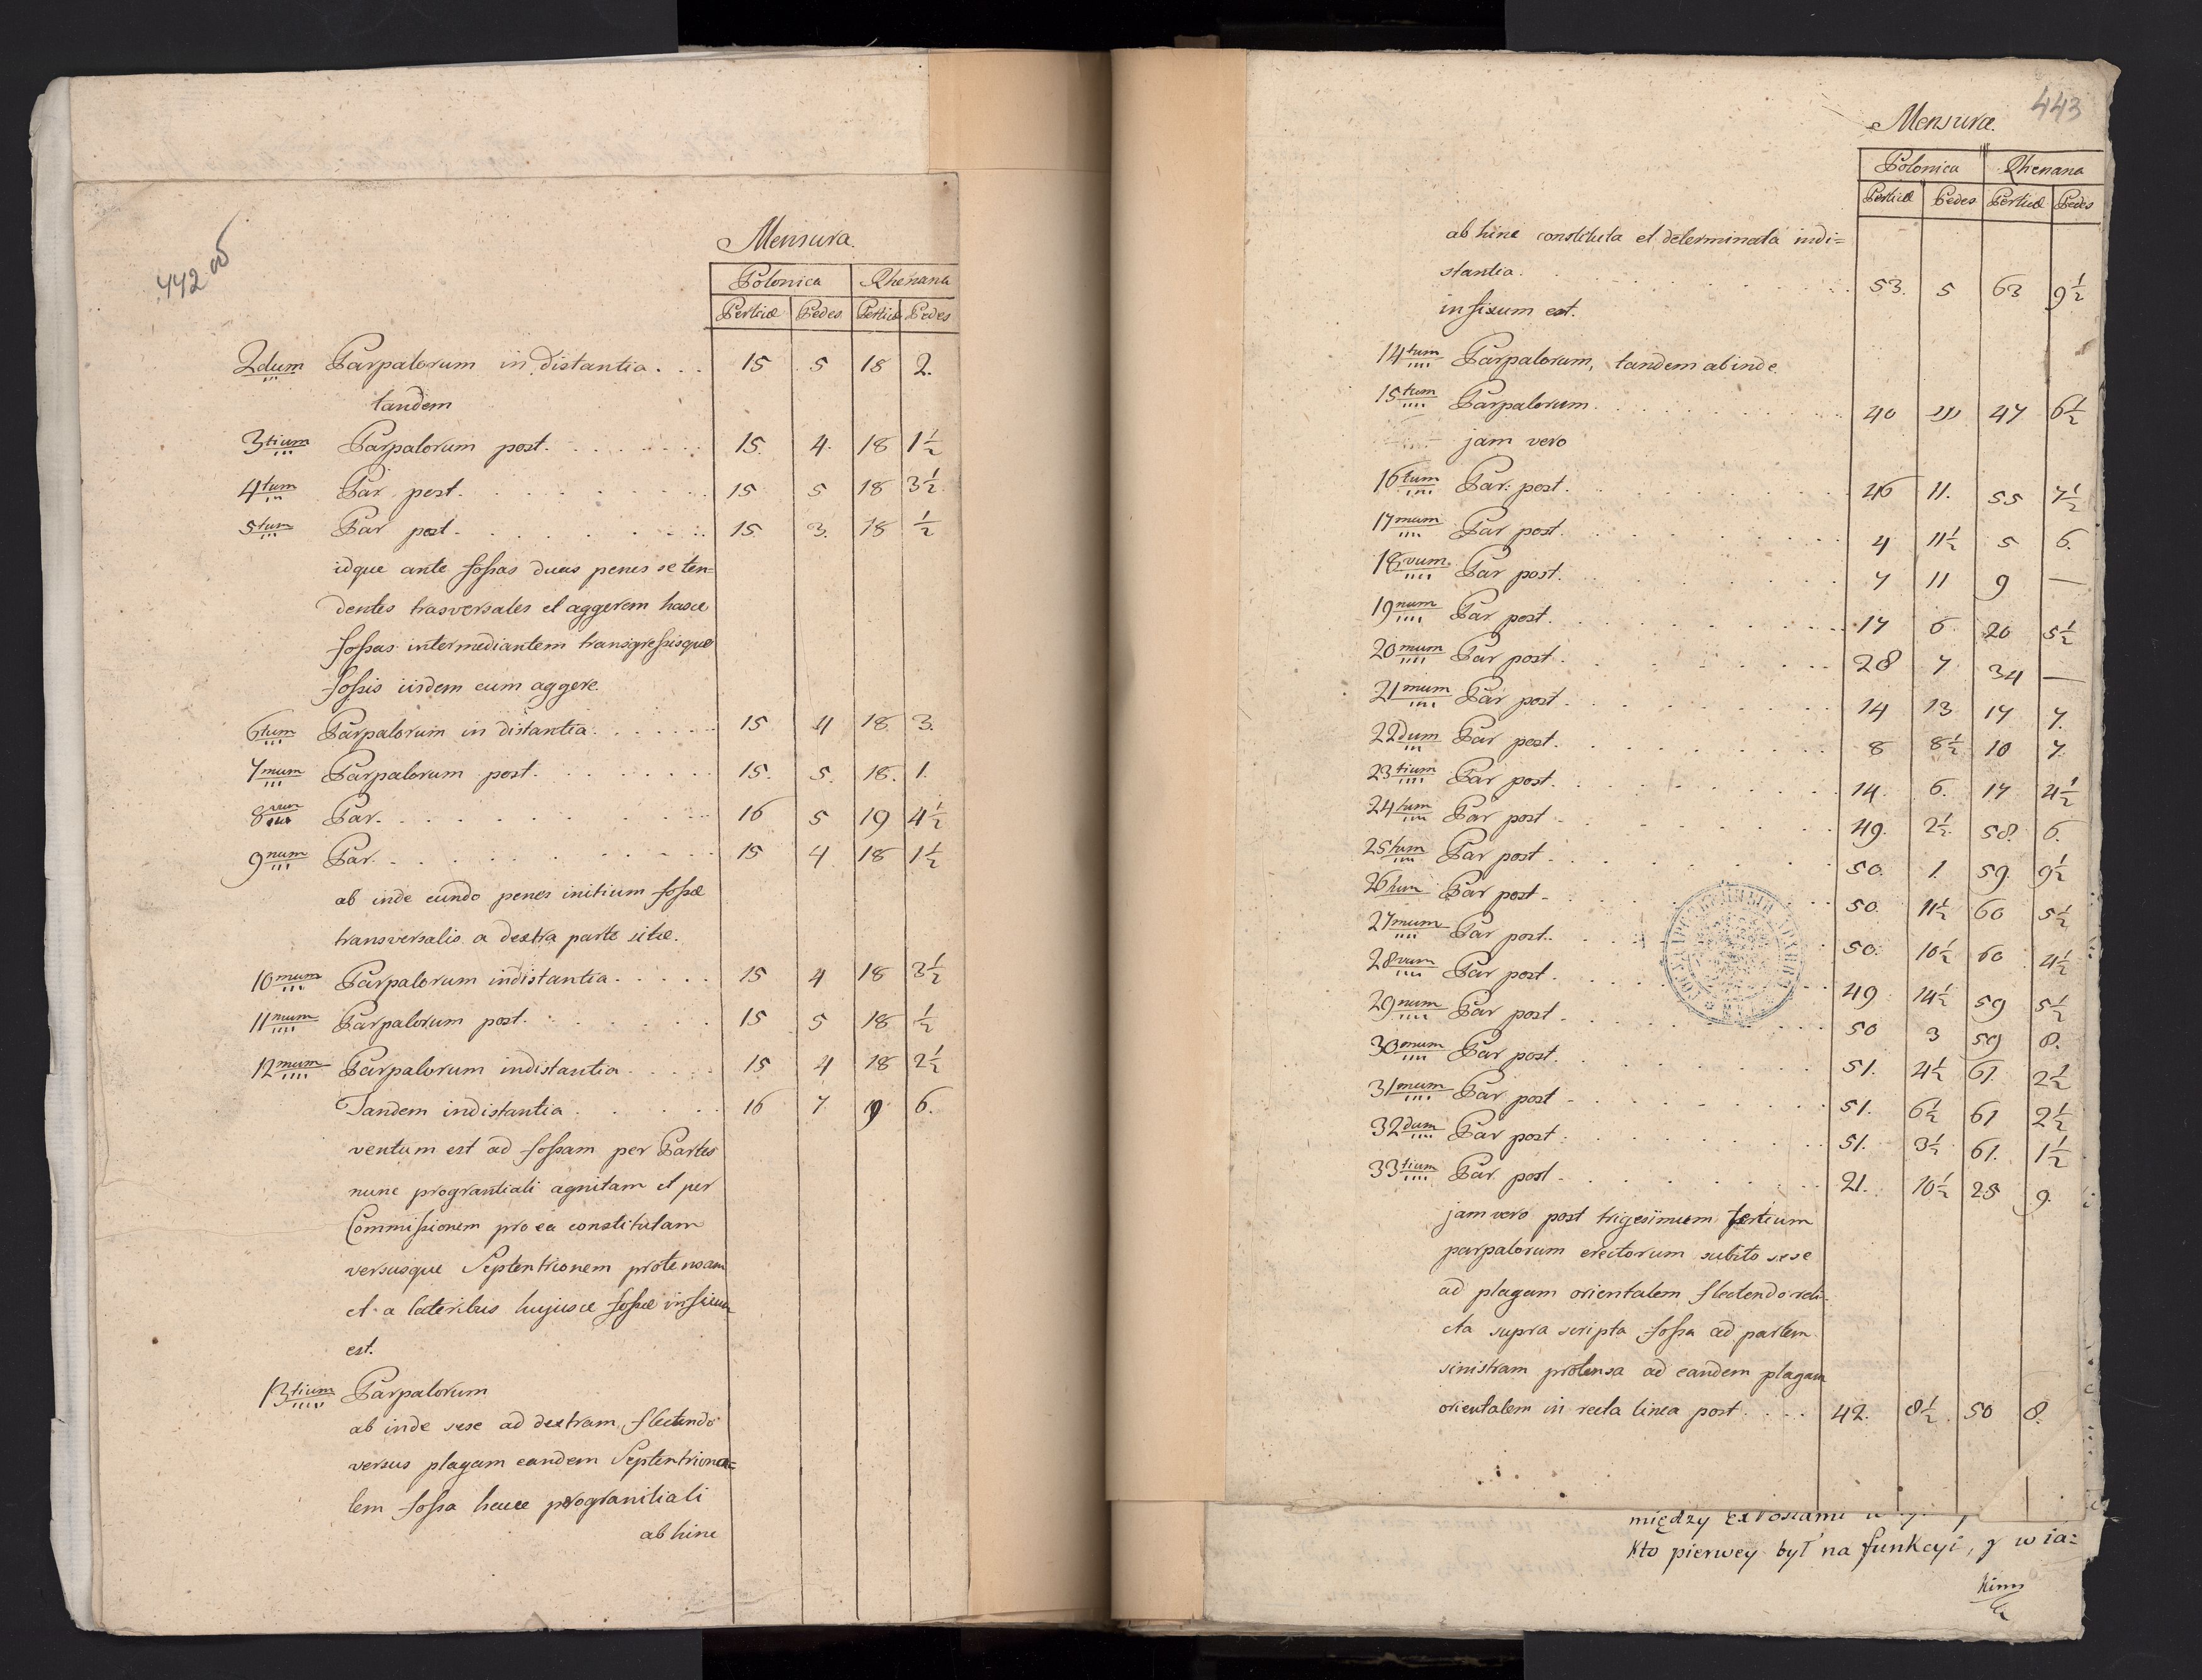 442 об
Mensura.
Polonica Rhenana
Perticæ Pedes Perticæ Pedes
2dum Parpalorum in distantia . . . 15 5 18 2.
tandem
3tium Parpalorum post. . . . . 15. 4. 18 1½
4tum Par post. . . . . 15 5 18 3½
5tum Par post. . . . . 15. 3. 18 ½
idque ante fossas duas penes se ten=
dentes trasversales et aggerem hasce
fossas intermediantem transgressisque
fossis iisdem cum aggere.
6tum Parpalorum in distantia. . . . . 15 4 18. 3.
7mum Parpalorum post. . . . . 15. 5. 18. 1.
8vum Par. . . . . 16 5 19 4½
9num Par. . . . . 15 4 18 1½
ab inde eundo penes initium fossæ
transversalis a dextra parte sitæ.
10mum Parpalorum indistantia. . . . . 15 4 18 3½
11mum Parpalorum post. . . . . 15 5 18 ½
12mum Parpalorum indistantia . . . . 15 4 18 2½
Tandem indistantia . . . . 16 7 19 6.
ventum est ad fossam per Partes
nunc prograntiali agnitam et per
Commissionem pro ea constitutam
versusque Septentrionem protensam
et a lateribus hujusce fossæ infixum
est.
13tium Parpalorum
ab inde sese ad dextram flectendo
versus plagam eandem Septentriona=
lem fossa hacce progranitiali
ab hinc
443
Mensuræ.
Polonica Rhenana
Perticæ Pedes Perticæ Pedes
ab hinc constituta et determinata indi=
stantia. . . . . 53. 5 63 9½
infixum est.
14tum Parpalorum, tandem abinde
15tum Parpalorum. . . . . 40 47 6½
jam vero
16tum Par: post. . . . . 46 11. 55 7½
17mum Par post. . . . . 4 11½ 5 6.
18vum Par post. . . . . 7 11 9 —
19num Par post. . . . . 17 6. 20 5½
20mum Par post. . . . . 28 7 34 —
21mum Par post. . . . . 14 13 17 7.
22dum Par post. . . . . 8 8½ 10 7.
23tium Par post. . . . . 14. 6. 17 4½
24tum Par post. . . . . 49. 2½. 58. 6.
25tum Par post. . . . . 50. 1 59. 9½
26tum Par post. . . . . 50. 11½ 60 5½
27mum Par post. . . . . 50. 10½ 60 4½
28vum Par post. . . . . 49 14½ 59 5½
29num Par post. . . . . 50 3 59 8.
30mum Par post. . . . . 51. 4½ 61. 2½
31mum Par post. . . . . 51. 6½ 61 2½
32dum Par post. . . . . 51. 3½ 61. 1½
33tium Par post. . . . . 21. 10½ 25 9.
jam vero post trigesimum tertium
parpalorum erectorum subito sese
ad plagam orientalem flectendo reli=
cta supra scripta fossa ad partem
sinistram protensa ad eandem plagam
orientalem in recta linea post. . . . 42. 8½. 50 8.
między
Kto pierwey był na funkcyi, y w ia=